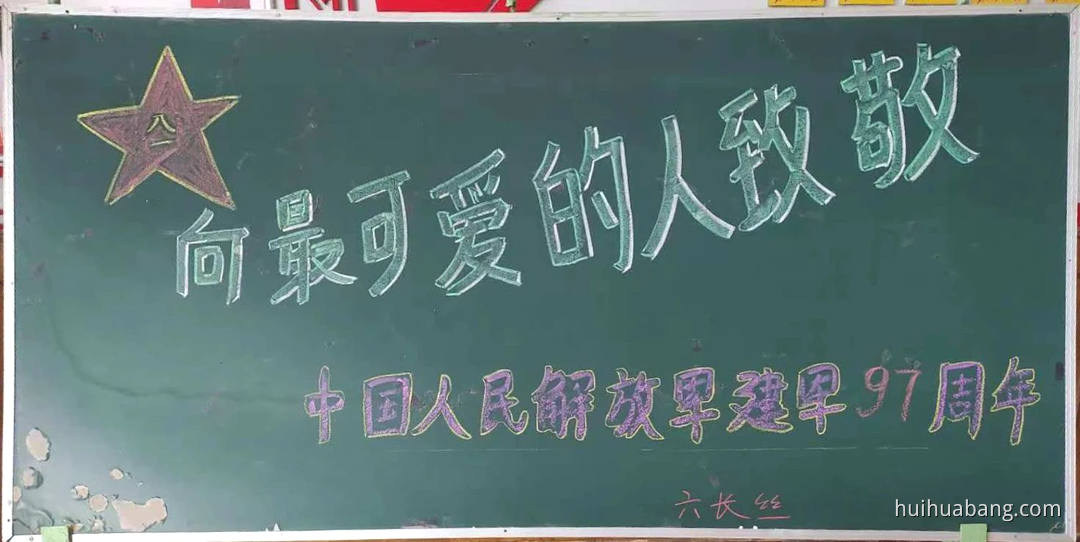 八一
向最可爱的人致敬
中国人民解放军建军97周年
六长丝
huihuabang.com